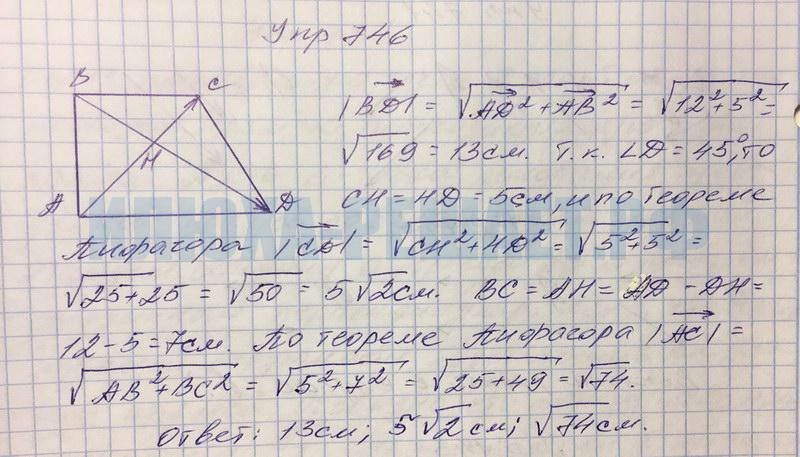 Упр 746
B C
H
A D
|BD| = √AD² + AB² = √12² + 5² =
√169 = 13см. Т.к. ∠D = 45°, то
CH = HD = 5см, и по теореме
Пифагора |CD| = √CH² + HD² = √5² + 5² =
√25 + 25 = √50 = 5√2 см. BC = AH = AD - DH =
12 - 5 = 7см. По теореме Пифагора |AC| =
√AB² + BC² = √5² + 7² = √25 + 49 = √74.
Ответ: 13см; 5√2 см; √74 см.